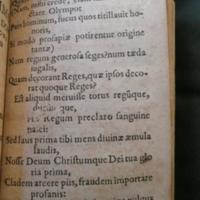 ctare Olympo?
hominum, fucus quos titillauit ho-
noris,
modò prosapiæ potirentur origine
tantæ?
Num regum generosa seges? num tæda
iugalis,
Quam decorant Reges, quæ ipsos deco-
rat quoque Reges?
Est aliquid meruisse torus regúque,
Regum præclaro sanguine
nasci:
Sed laus prima tibi mens diuinæ æmula
laudis,
Nosse Deum Christumque Dei tua glo
ria prima,
Cladem arcere piis, fraudem importare
profanis: